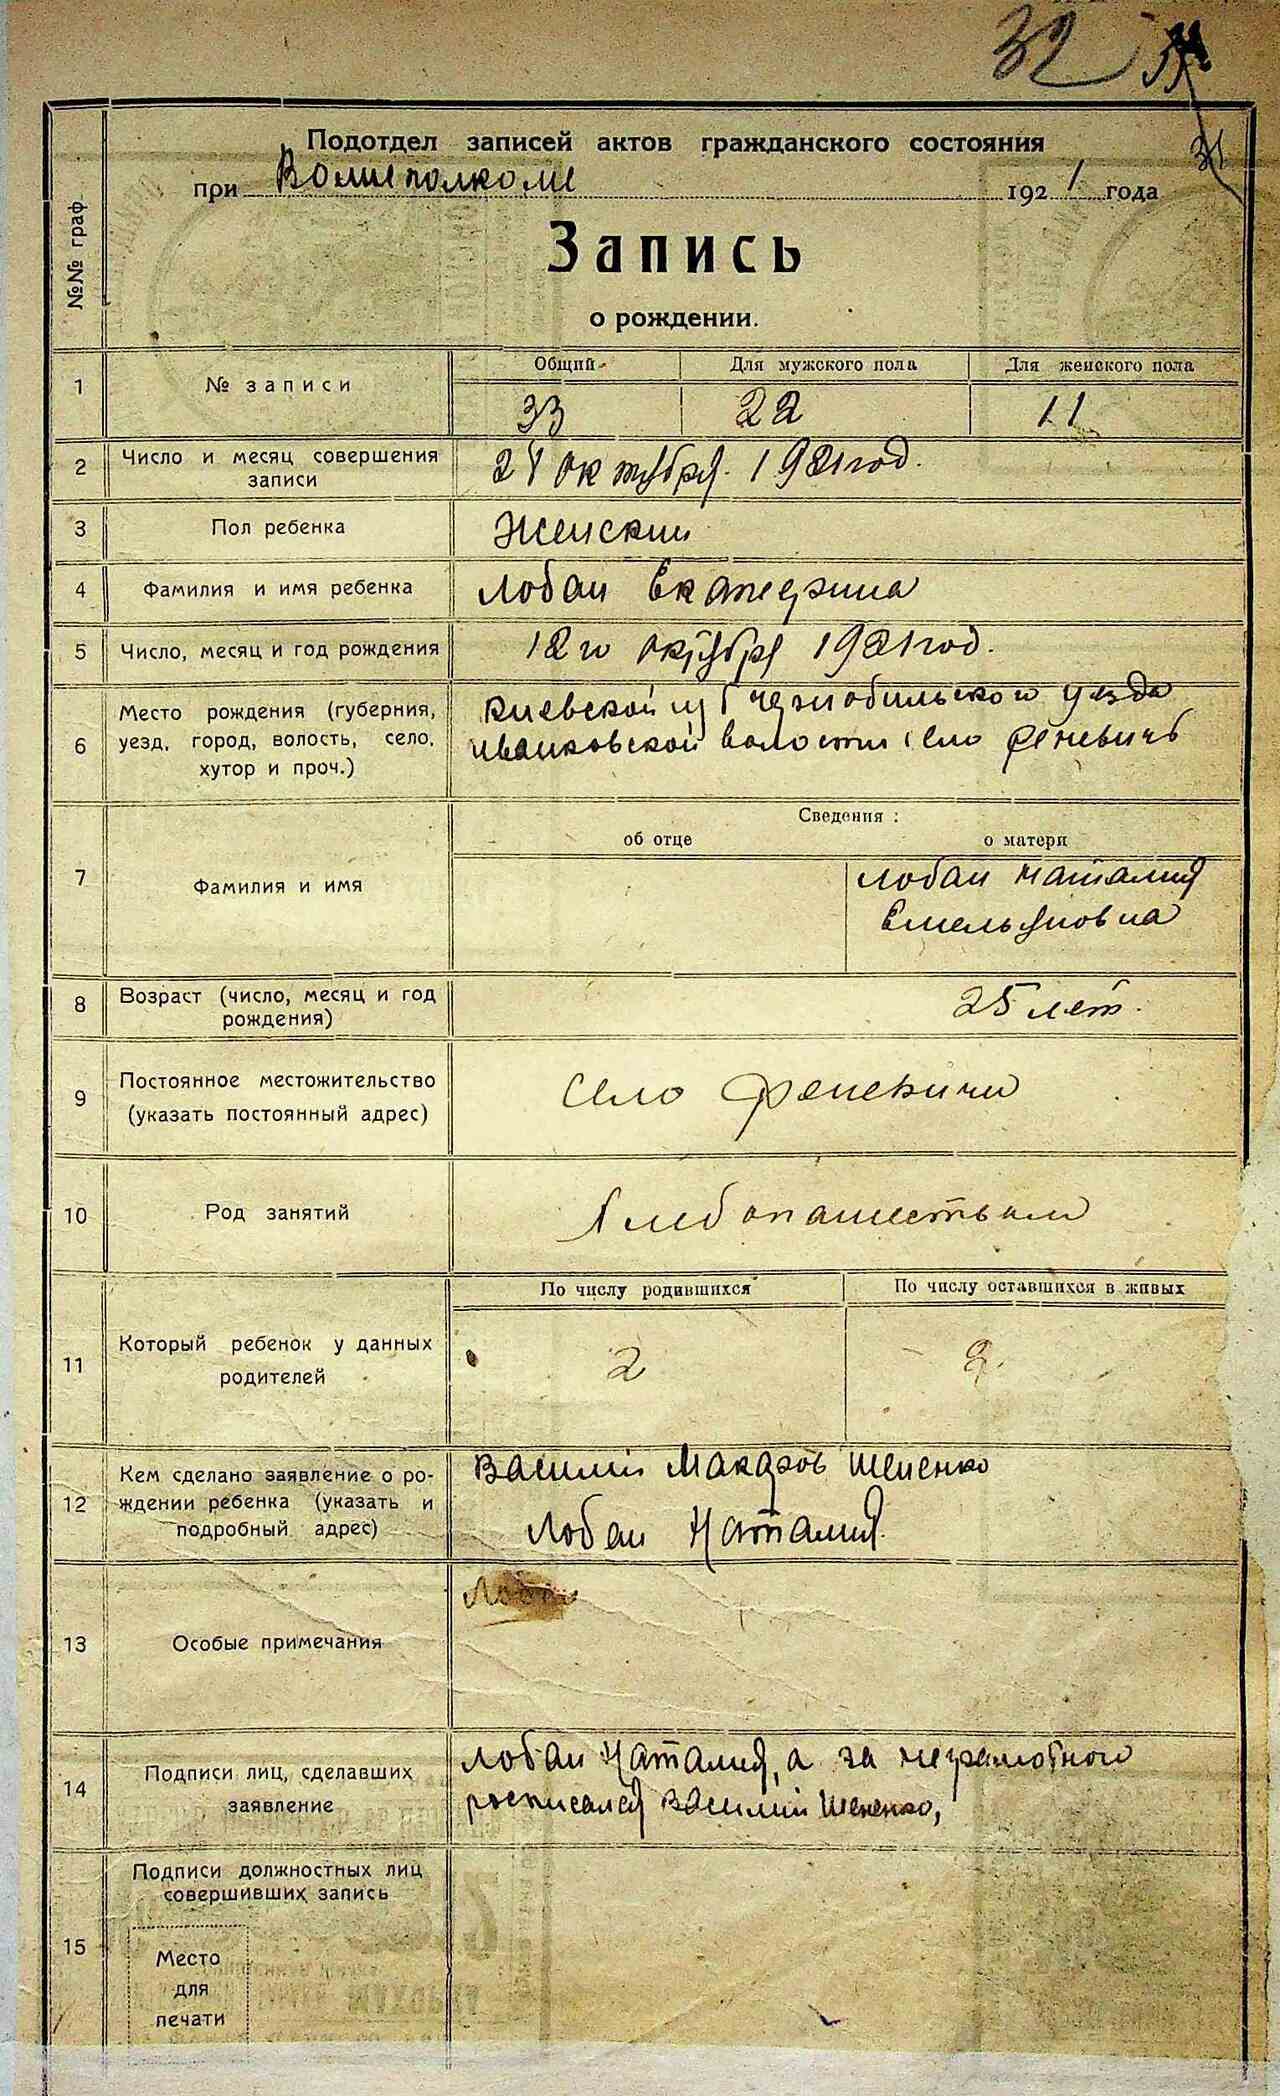 32
31
Подотдел записей актов гражданского состояния
при Волисполкоме 1921 года
Запись
о рождении.
№№ граф
1 № записи Общий Для мужского пола Для женского пола
33 22 11
2 Число и месяц совершения записи
24 октября 1921 год.
3 Пол ребенка Женский
4 Фамилия и имя ребенка Лобан Екатерина
5 Число, месяц и год рождения 12го октября 1921 год.
6 Место рождения (губерния, уезд, город, волость, село, хутор и проч.)
Киевской губ Чернобильского уезда
Иванковской волости село Феневичь
Сведения :
об отце о матери
7 Фамилия и имя
Лобан Наталия
Емельяновна
8 Возраст (число, месяц и год рождения)
25 лет.
9 Постоянное местожительство (указать постоянный адрес)
село Феневичи
10 Род занятий
Хлебопашеством
По числу родившихся По числу оставшихся в живых
11 Который ребенок у данных родителей
2 2.
12 Кем сделано заявление о рождении ребенка (указать и подробный адрес)
Василий Макаров Шененко
Лобан Наталия.
13 Особые примечания
14 Подписи лиц, сделавших заявление
Лобан Наталия, а за неграмотного
росписался Василий Шененко,
15 Подписи должностных лиц совершивших запись
Место
для
печати